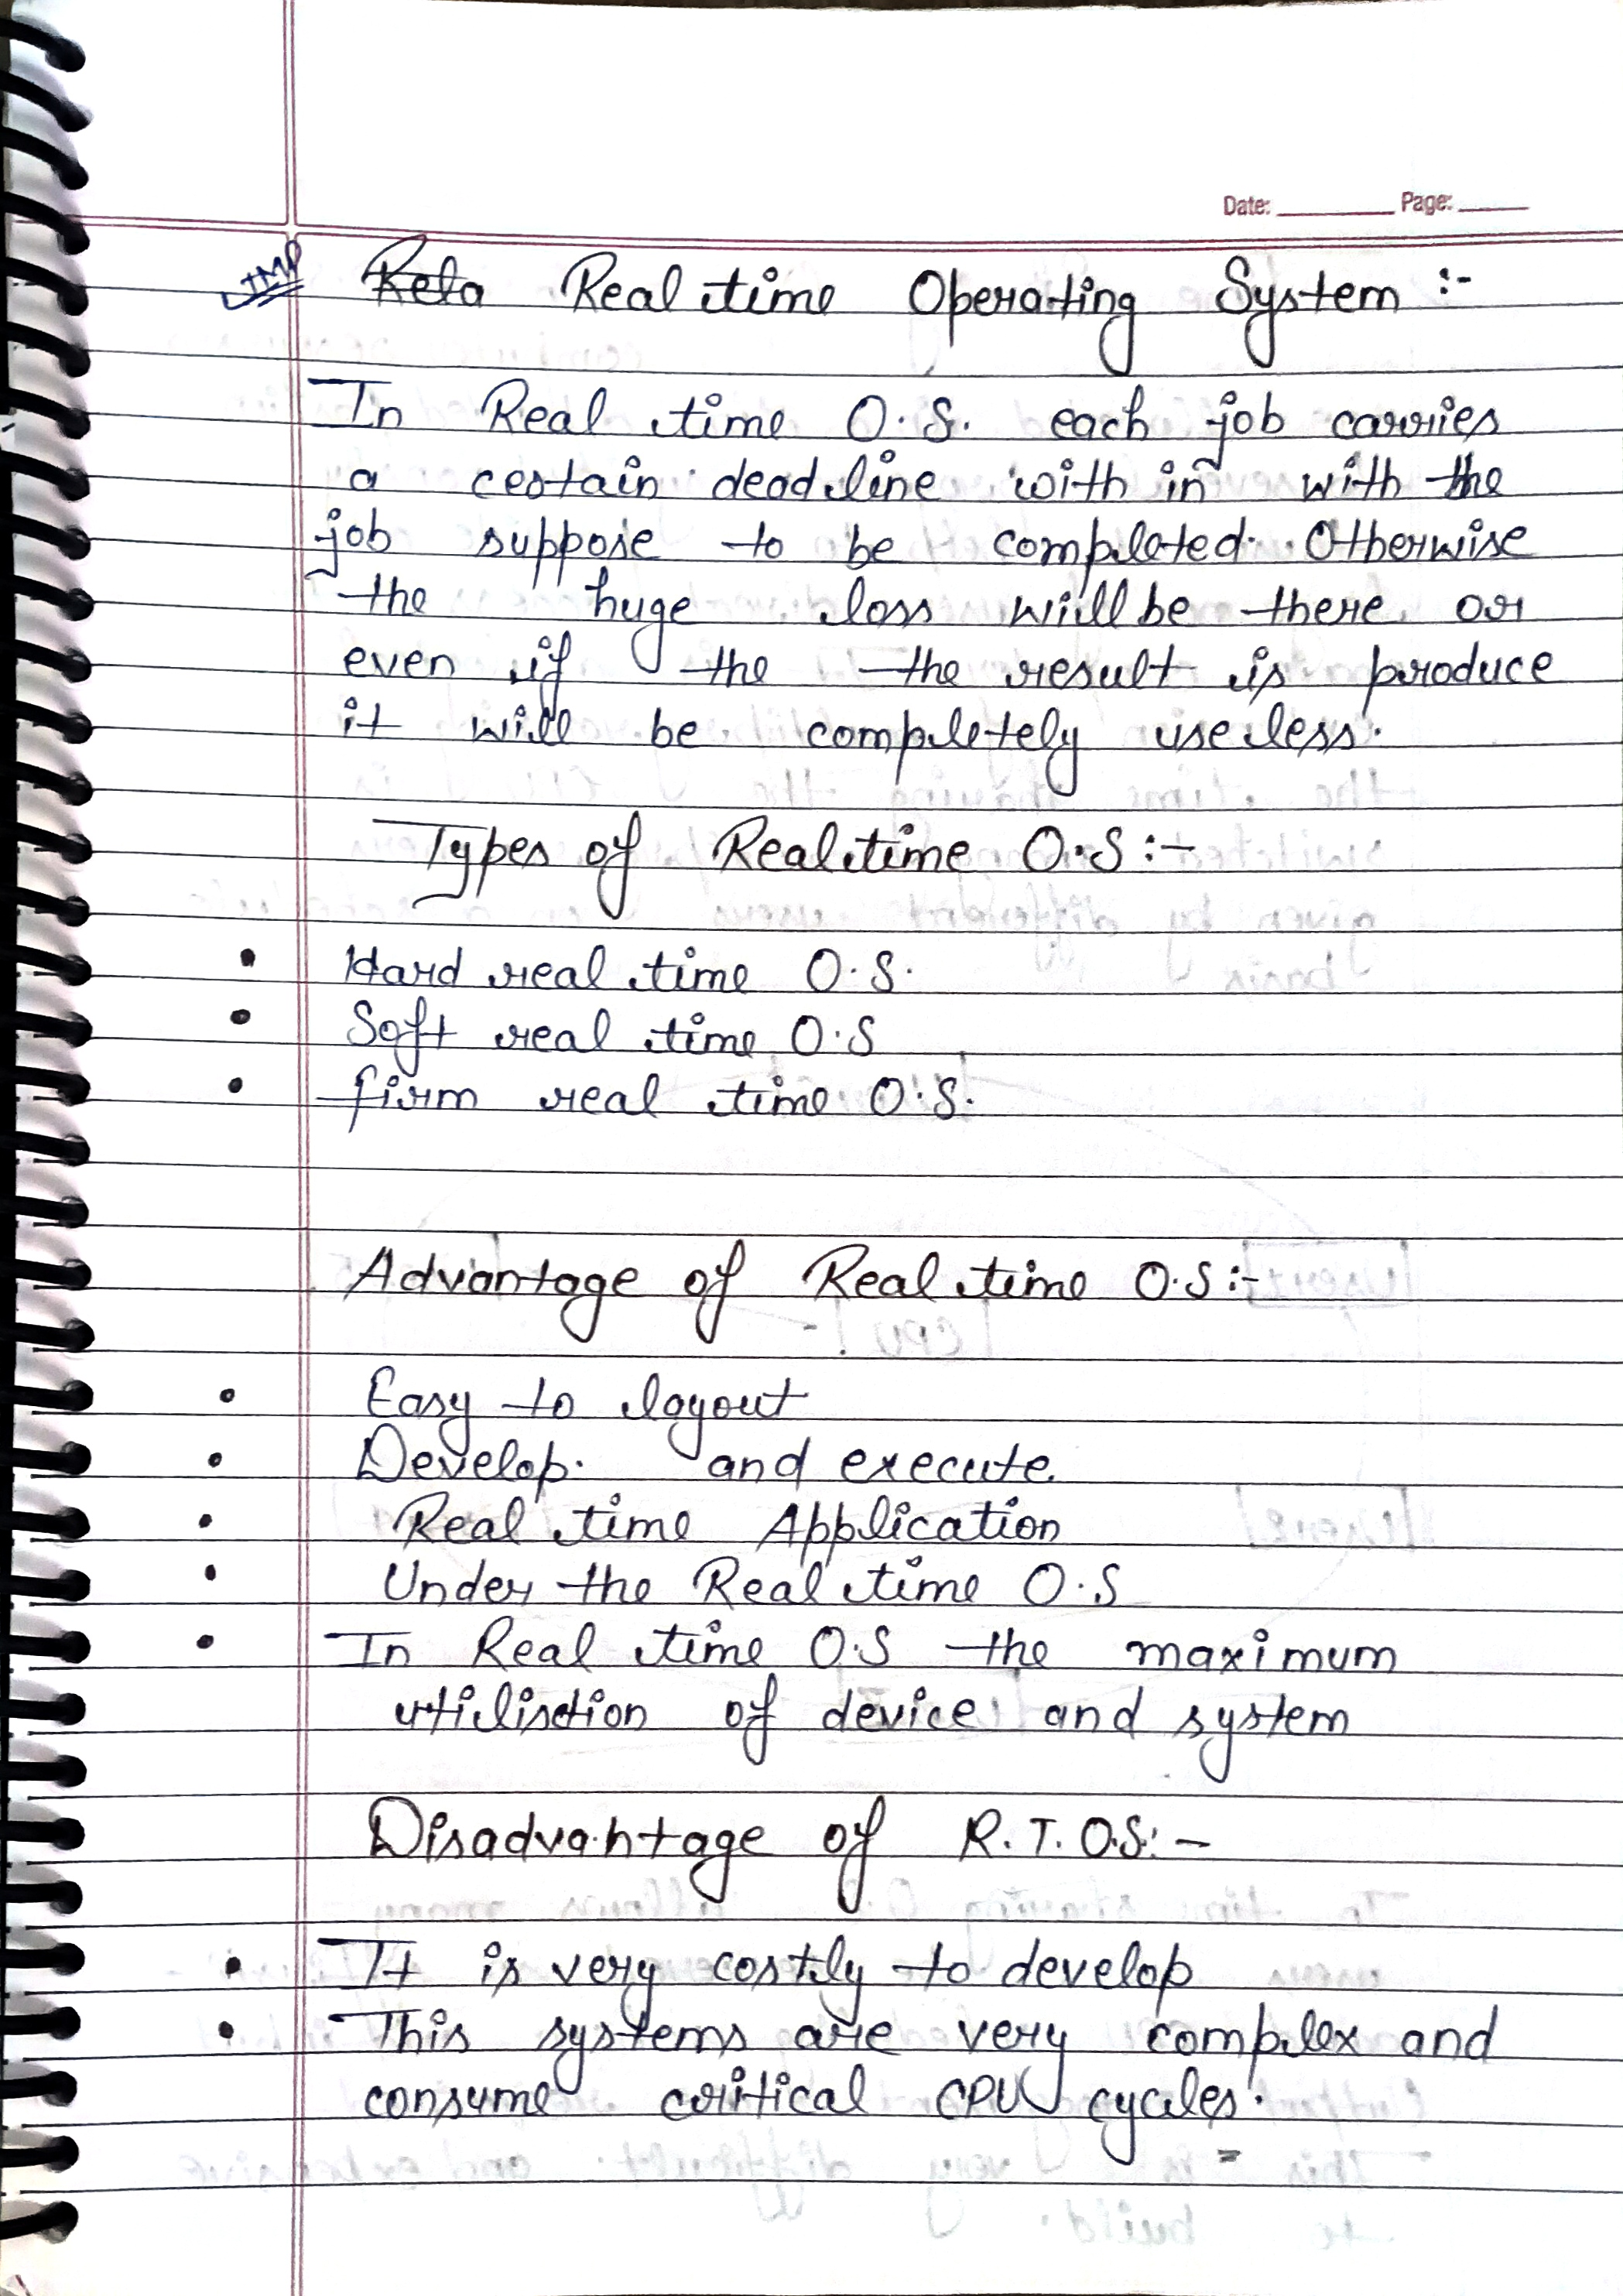 Date: Page:
IMP Rela Real time Operating System :-
In Real time O.S. each job carries
a certain deadline with in with the
job suppose to be completed. Otherwise
the huge loss will be there or
even if the the result is produce
it will be completely useless.
Types of Real time O.S :-
• Hard real time O.S.
• Soft real time O.S
• firm real time O.S.
Advantage of Real time O.S :-
• Easy to layout
• Develop. and execute.
• Real time Application
• Under the Real time O.S
• In Real time O.S the maximum
utilisction of device and system
Disadvantage of R.T.O.S:-
• It is very costly to develop
• This systems are very complex and
consume critical CPU cycles.